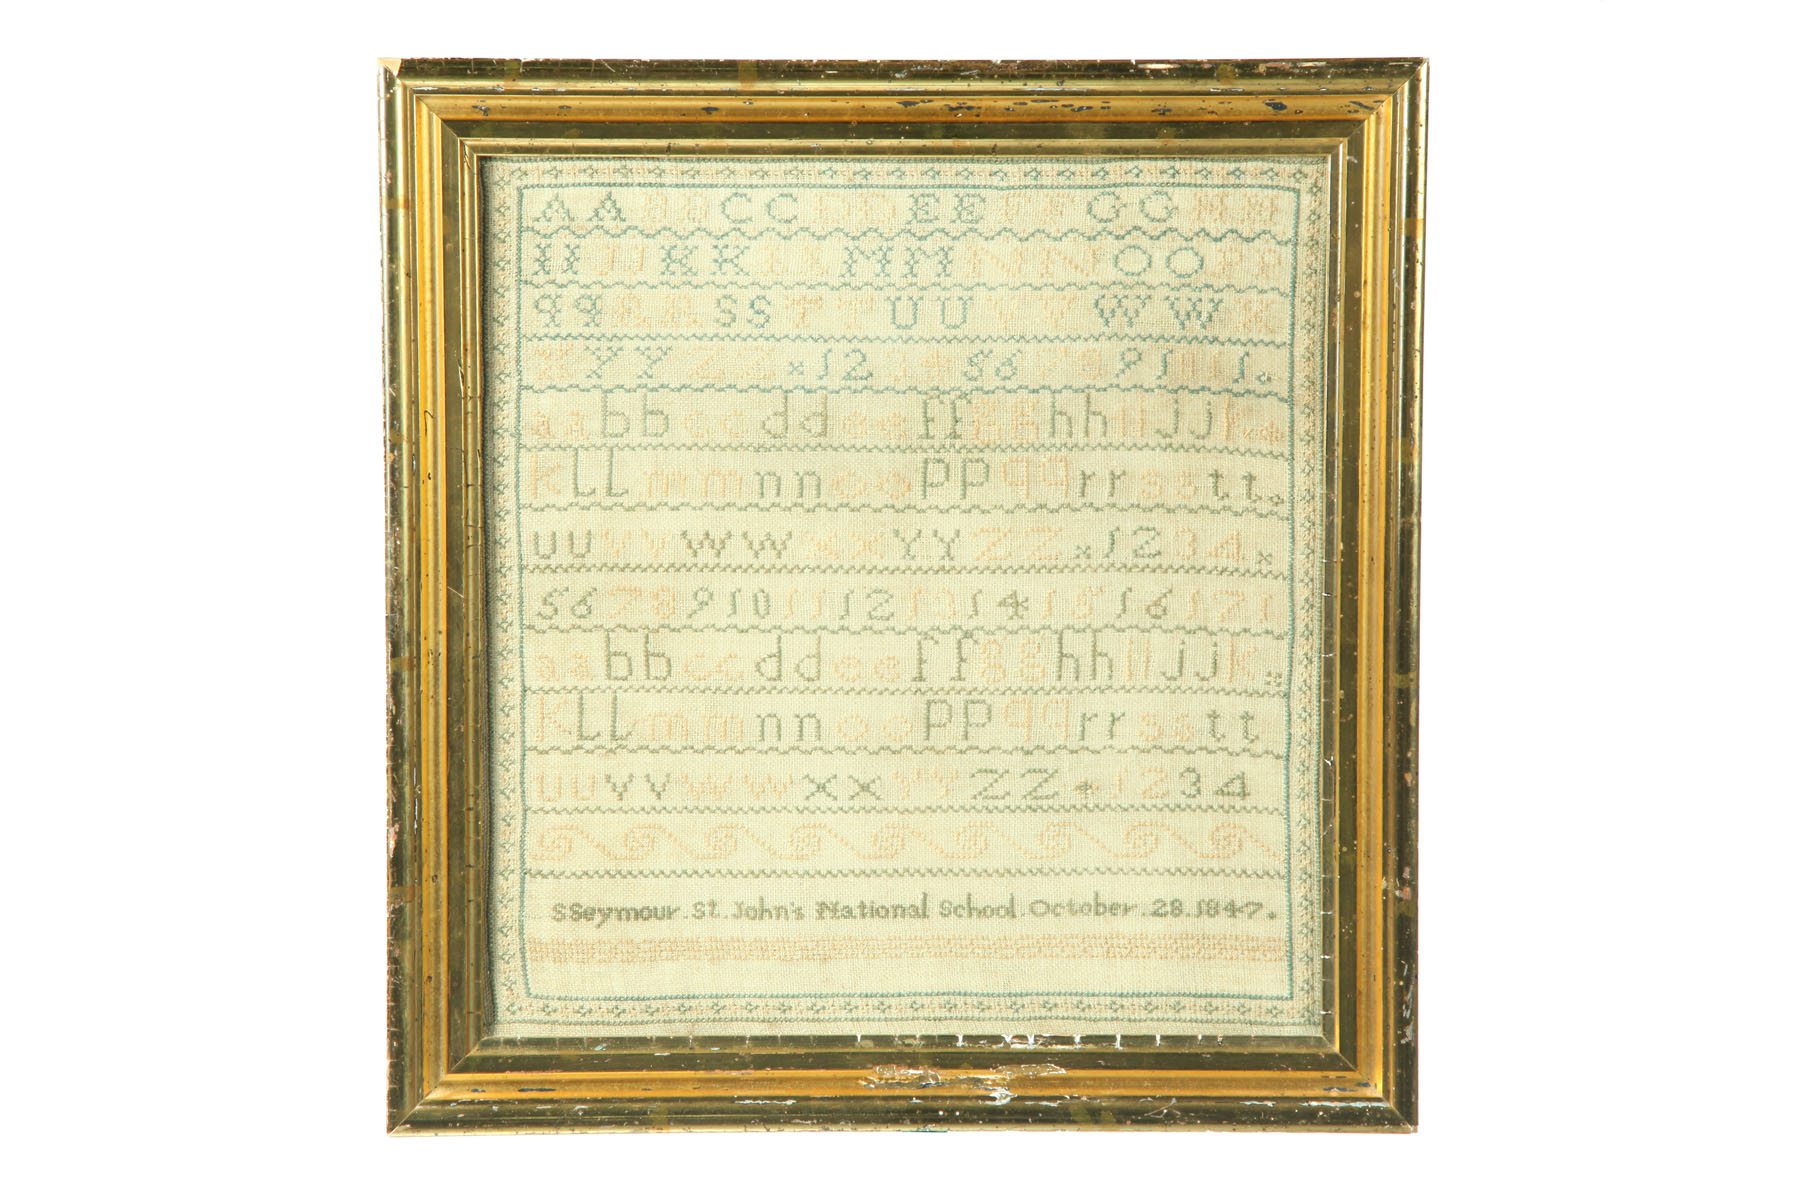 AABBCCDDEEFFGGHH
IIJJKKLLMMNNOOPP
qqRRSSTTUUVVWWX
XYYZZ×12345678910111.
aabbccddeeffgghhiijjk
kllmmnnooppqqrrsstt.
uuvvwwxxyyzz×1234×
5678910111213141516171
aabbccddeeffgghhiijjk
kllmmnnooppqqrrsstt
uuvvwwxxyyzz*1234
SSeymour. St. John's National School. October. 28. 1847.